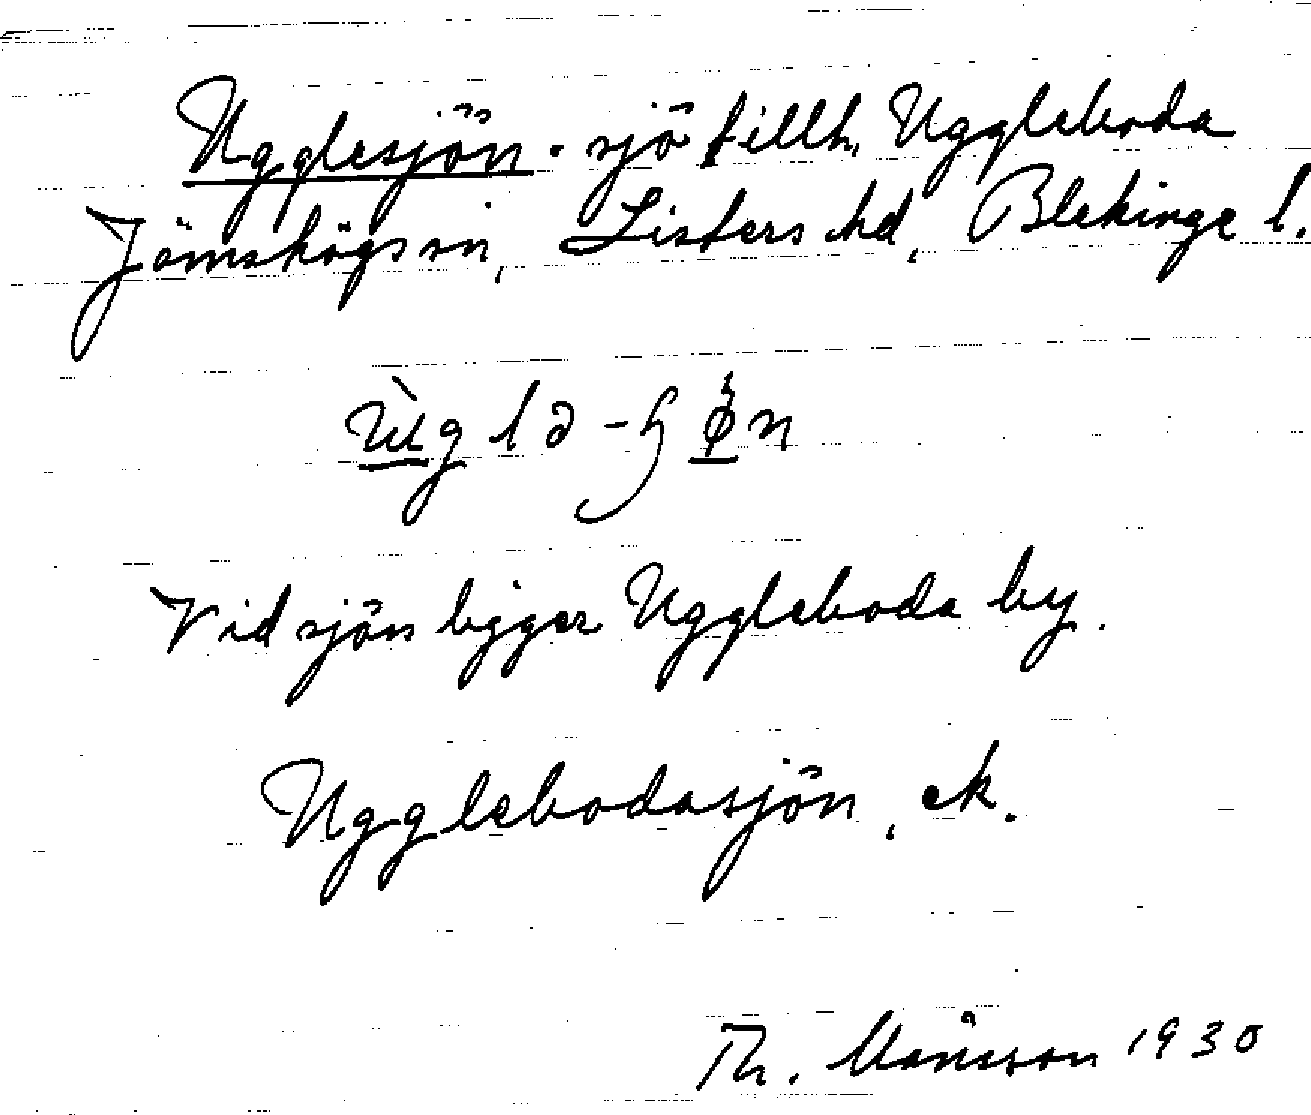 Ugglesjön. sjö tillh. Uggleboda
Jämshögs sn, Listers hd, Blekinge l.
Vid sjön ligger Uggleboda by.
Ugglebodasjön, ek.
Th. Månsson 1930